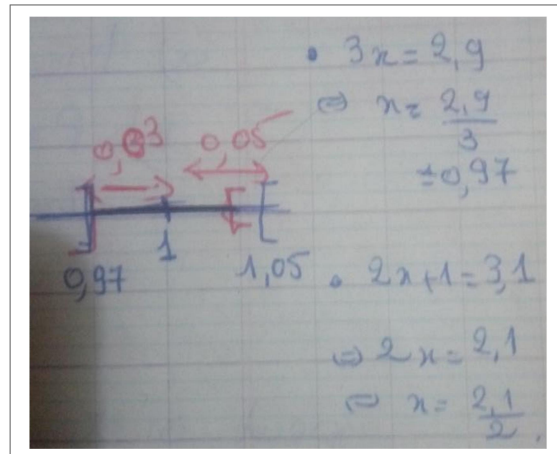 • 3x = 2,9
⇔ x = 2,9/3
≠ 0,97
0,03
0,05
0,97
1
1,05
• 2x+1 = 3,1
⇔ 2x = 2,1
⇔ x = 2,1/2.